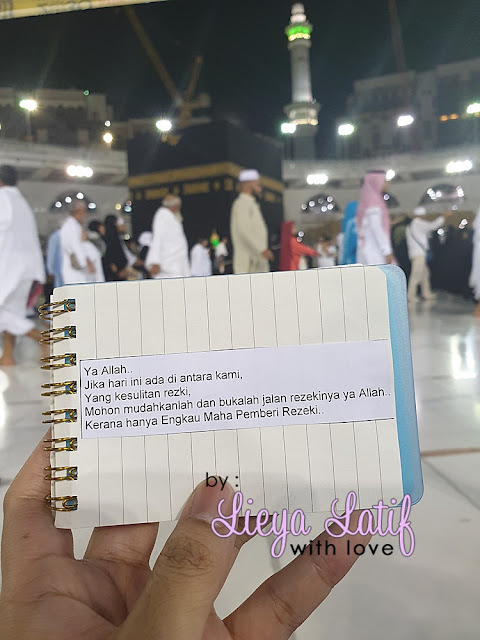 Ya Allah..
Jika hari ini ada di antara kami,
Yang kesulitan rezki,
Mohon mudahkanlah dan bukalah jalan rezekinya ya Allah..
Kerana hanya Engkau Maha Pemberi Rezeki..
by :
Lieya Latif
with love